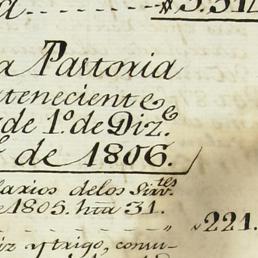 a........$5.51
a Pastoria
rteneciente
de 1º. de Diz.e
de 1806.
larios delos Sirv.tes
e 1805. hta 31.
$221.
iz y trigo, consu-